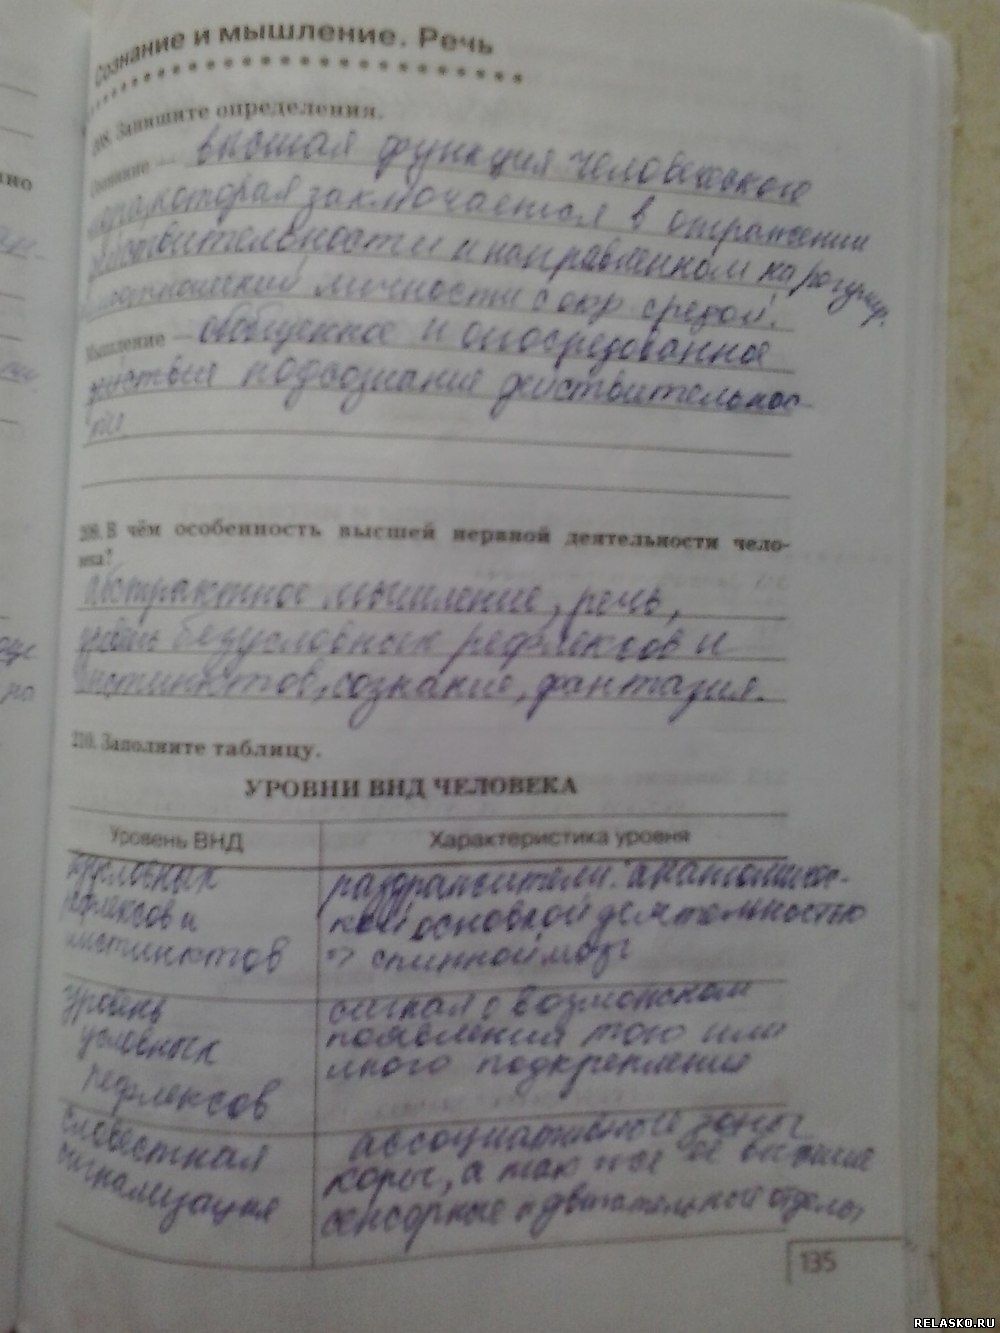 Сознание и мышление. Речь
208. Запишите определения.
Сознание — высшая функция человеческого
мозга, которая заключается в отражении
действительности и направленном на регулир.
взаимоотношений личности с окр средой.
Мышление — обобщенное и опосредованное
действие подсознание действительнос-
ти.
209. В чём особенность высшей нервной деятельности чело-
века?
абстрактное мышление, речь,
уровень безусловных рефлексов и
инстинктов, сознание, фантазия.
210. Заполните таблицу.
УРОВНИ ВНД ЧЕЛОВЕКА
Уровень ВНД
Характеристика уровня
рефлексов и
инстинктов
раздражители. анатомичес-
кой основной деятельностью
=> спинной мозг
уровень
условных
рефлексов
сигнал о возможном
появления того или
иного подкрепления
словестная
сигнализация
ассоциативные зоны
коры, а так же её высшие
сенсорные и двигательный отделы
135
RELASKO.RU